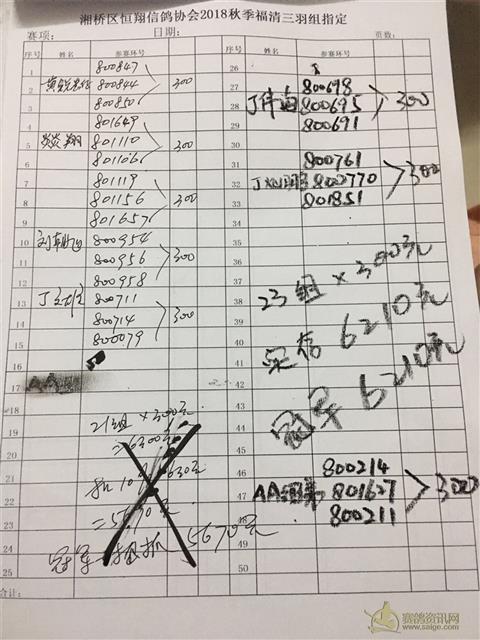 湘桥区恒翔信鸽协会2018秋季福清三羽组指定
赛项: 日期: 页数:
序号 姓名 参赛环号 序号 姓名 参赛环号
1 800847
2 800844 300
3 800850
4 801649
5 801110 300
6 801106
7 801119
8 801156 300
9 801657
10 800954
11 800956 300
12 800958
13 800711
14 800714 300
15 800079
16
17
18
19
20
21
22
23
24
25
26
27 800698
28 800695 300
29 800691
30
31 800761
32 802770 300
33 801851
34
35
36
37
38
39
40
41
42
43
44
45
46
47
48
49
50
23组×300元
实信 6210元
冠军 6210元
800214
801627 300
800211
21组×300元
=6300元
扣10% 630元
=5670元
5670元
合计:
赛鸽资讯网
www.saige.com